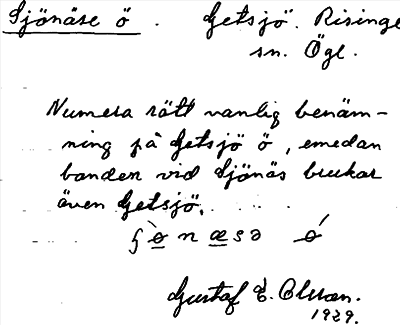 Sjönäse ö . Getsjö. Risinge
sn. Ögl.
Numera rätt vanlig benäm-
ning på Getsjö ö, emedan
banden vid Sjönäs brukar
även Getsjö.
Gustaf E. Olsson.
1929.